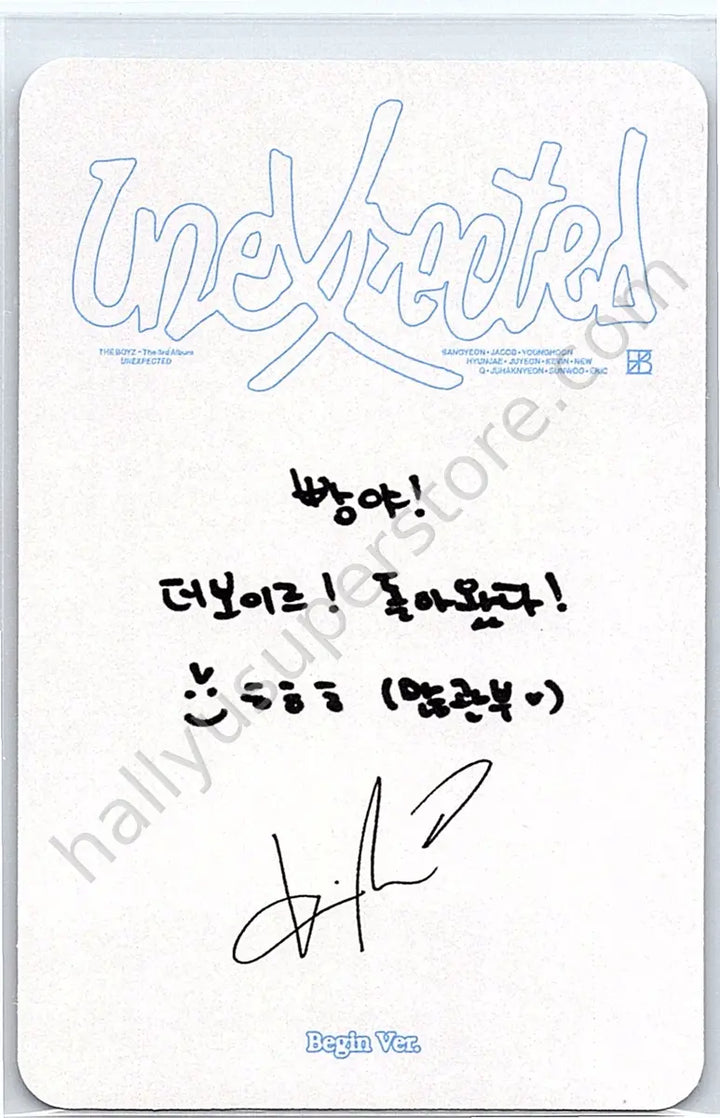 Unexpected
THE BOYZ - The 3rd Album
UNEXPECTED
SANGYEON • JACOB • YOUNGHOON
HYUNJAE • JUYEON • KEVIN • NEW
Q • JUHAKNYEON • SUNWOO • ERIC
빵야!
더보이즈! 돌아왔다!
ㅎㅎㅎ (많관부♥)
Begin Ver.
hallyusuperstore.com